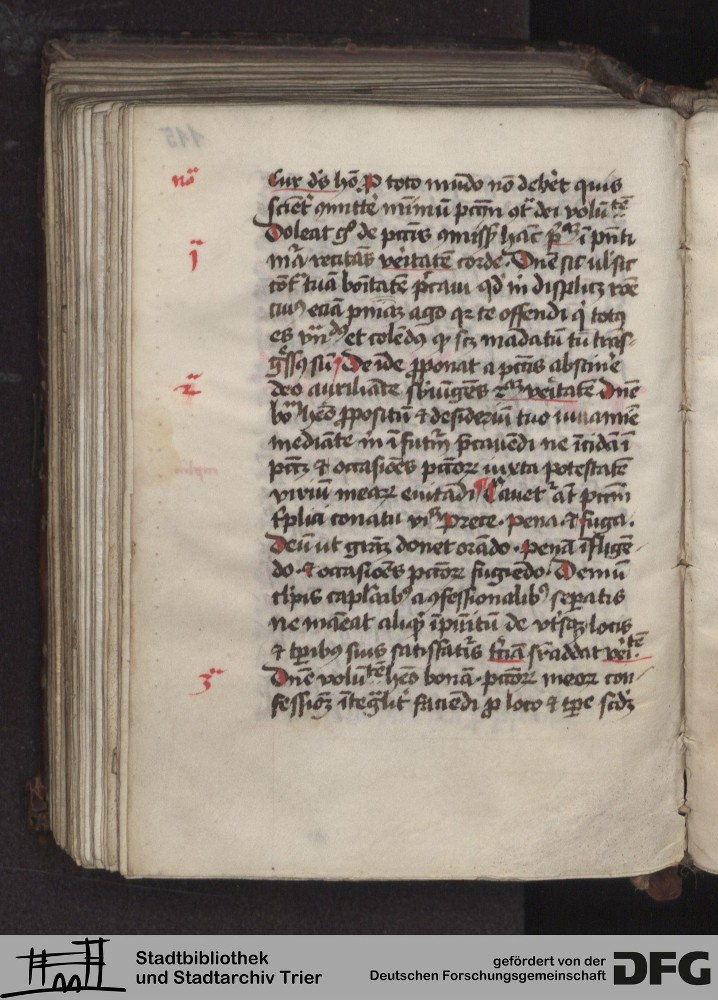 115
nō
Cur dūs hō p toto mūdo nō deberet quis
scient' ꝯmitte' minimū pctm ꝯt' dei volūtē
Doleat gͦ de pctis ꝯmiss' hāc p'aꝫ ī pn̄ti
ī
m'a recitās veritatē corde. Dn̄e sic ul' sic
cōt' tuā bonitatē p̄caui qd' m' displicꝫ rōe
cuiꝰ eciā pnīaꝫ ago qꝛ te offendi q' totꝰ
es et colēdꝰ qꝫ scꝫ mādatū tū trās-
g'ssꝰ sū De īde ꝓponat a pctis abstin'e
ii
deo auxiliāte sbiūgēs 2am veritatē Dn̄e
bonū hēo ꝓpositū & desideriū tuo iuuamīe
mediāte m' ī futuꝝ p̄cauēdi ne īcidā ī
pctꝫ & occasiōes pctoꝝ iuxta potestatē
viriū meaꝝ euitādi Cauet' āt pctm
t'plici conatu vꝫ prece . pena . & fuga .
Deū ut grāꝫ donet orādo . penā īfligē-
do . & occasiōes pctoꝝ fugiēdo . Demū
cl'pis caplaribꝰ a ꝯfessionalibꝰ sep̄atis
ne māeat aliqd' īpūitū de vt'sqꝫ locis
& tp̄ribꝰ suis satisfactis t'ciā s'uaddat vēitē.
3a
Dn̄e volūtē hēo bonā . pctoꝝ meoꝝ con-
fessioꝫ īteg'lit' faciēdi p loco & tp̄e scdꝫ
Stadtbibliothek
und Stadtarchiv Trier
gefördert von der
Deutschen Forschungsgemeinschaft
DFG